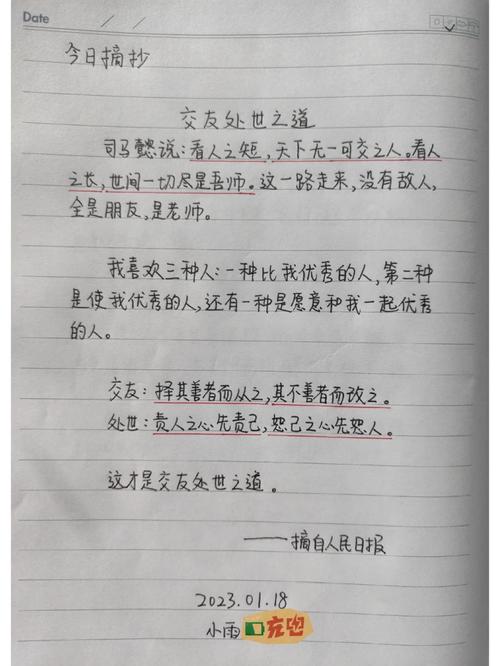 Date / /
今日摘抄
交友处世之道
司马懿说:看人之短,天下无一可交之人。看人
之长,世间一切尽是吾师。这一路走来,没有敌人,
全是朋友,是老师。
我喜欢三种人:一种比我优秀的人,第二种
是使我优秀的人,还有一种是愿意和我一起优秀
的人。
交友:择其善者而从之,其不善者而改之。
处世:责人之心先责己,恕己之心先恕人。
这才是交友处世之道。
——摘自人民日报
2023.01.18
小雨 充电